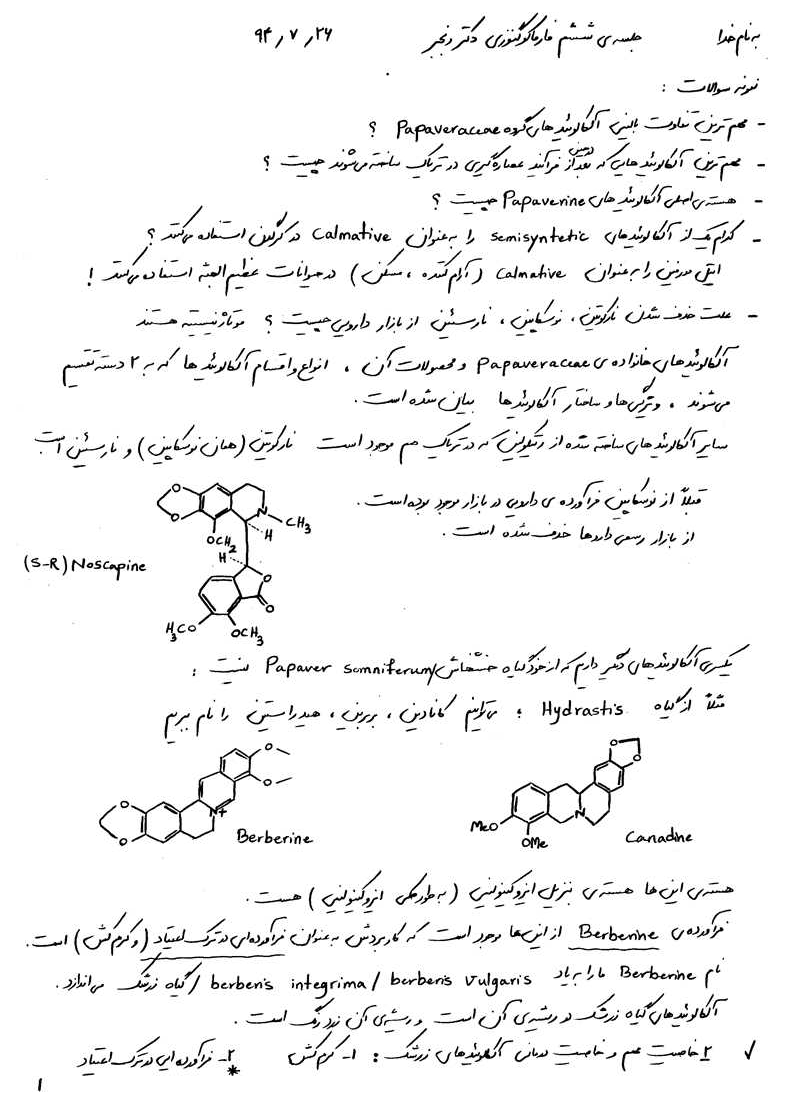 به نام خدا جلسه ی ششم فارماکوگنوزی دکتر رنجبر ۹۴٫۷٫۲۶
نمونه سوالات :
- مهم ترین تفاوت بالینی آلکالوئیدهای گروه Papaveraceae ؟
- مهم ترین آلکالوئیدهایی که بعد از فرآیند عصاره گیری در تریاک ساخته می شوند چیست ؟
- هسته ی اصلی آلکالوئیدهای Papaverine چیست ؟
- کدام یک از آلکالوئیدهای semisyntetic را به عنوان calmative در کرگدن استفاده می کنند ؟
اتیل مورفین را به عنوان calmative ( آرام کننده ، مسکن ) در حیوانات عظیم الجثه استفاده می کنند !
- علت حذف شدن نارکوتین ، نوسکاپین ، نارسئین از بازار دارویی چیست ؟ موتاژنیسیته هستند
آلکالوئیدهای خانواده ی Papaveraceae و محصولات آن ، انواع و اقسام آلکالوئیدها که به ۲ دسته تقسیم
می شوند ، ویژگی ها و ساختار آلکالوئیدها بیان شده است .
سایر آلکالوئیدهای ساخته شده از رتیکولین که در تریاک هم موجود است نارکوتین ( همان نوسکاپین ) و نارسئین است
قبلاً از نوسکاپین فرآورده ی دارویی در بازار موجود بوده است .
از بازار رسمی داروها حذف شده است .
N CH3
OCH2 H
H
(S-R) Noscapine
O
O
H3CO OCH3
یکسری آلکالوئیدهای دیگر داریم که از خود گیاه خشخاش/Papaver somniferum نیست :
مثلاً از گیاه Hydrastis ؛ می توانیم کانادین ، بربرین ، هیدراستین را نام ببریم
O
O
N+
Berberine
O
O
N
MeO
OMe
Canadine
هسته ی این ها هسته ی بنزیل ایزوکینولینی ( به طور کلی ایزوکینولینی ) هست .
فرآورده ی Berberine از این ها موجود است که کاربردش به عنوان فرآورده ای در ترک اعتیاد ( و کرم کش ) است .
نام Berberine ما را به یاد berberis integrima / berberis vulgaris / گیاه زرشک می اندازد .
آلکالوئیدهای گیاه زرشک در ریشه ی آن است و ریشه ی آن زرد رنگ است .
✓ ۲ خاصیت مهم و خاصیت درمانی آلکالوئیدهای زرشک : ۱- کرم کش ۲- فرآورده ای در ترک اعتیاد
*
1